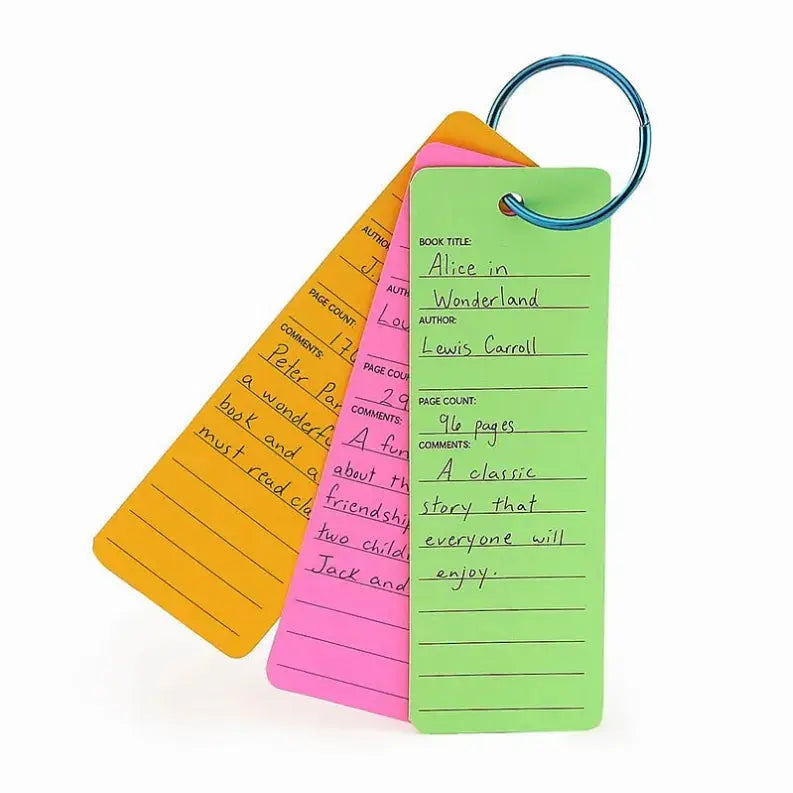 BOOK TITLE:
Alice in
Wonderland
AUTHOR:
Lewis Carroll
PAGE COUNT:
96 pages
COMMENTS:
A classic
story that
everyone will
enjoy.
AUTH
Lou
PAGE COU
29
COMMENTS:
A fun
about th
friendship
two child
Jack and
AUTHO
J.
PAGE COUNT:
176
COMMENTS:
Peter Pan
a wonderfu
book and a
must read cla